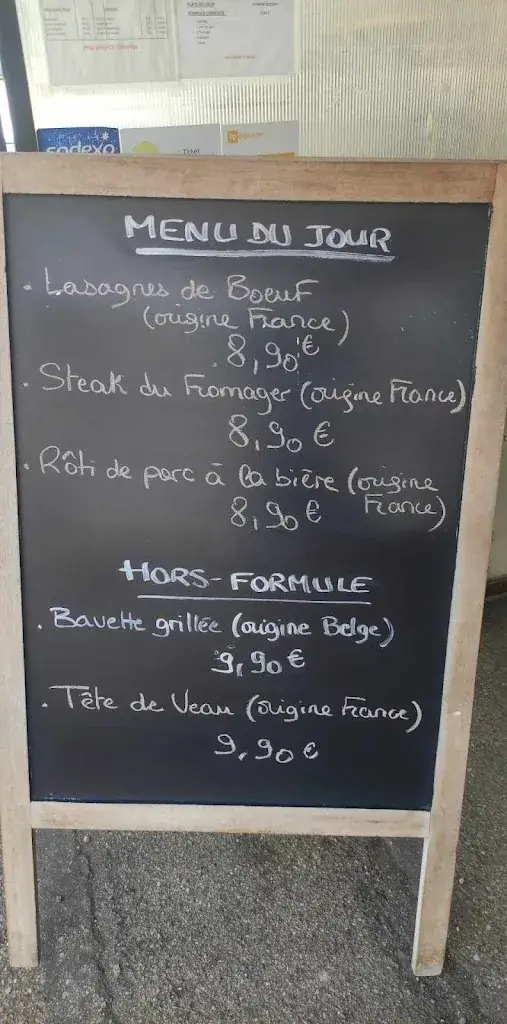 PLAT DU JOUR
sodexo
Ticket
MENU DU JOUR
. Lasagnes de Boeuf
(origine France)
8,90 €
. Steak du Fromager (origine France)
8,90 €
. Rôti de porc à la bière (origine
France)
8,90 €
HORS-FORMULE
. Bavette grillée (origine Belge)
9,90 €
. Tête de Veau (origine France)
9,90 €